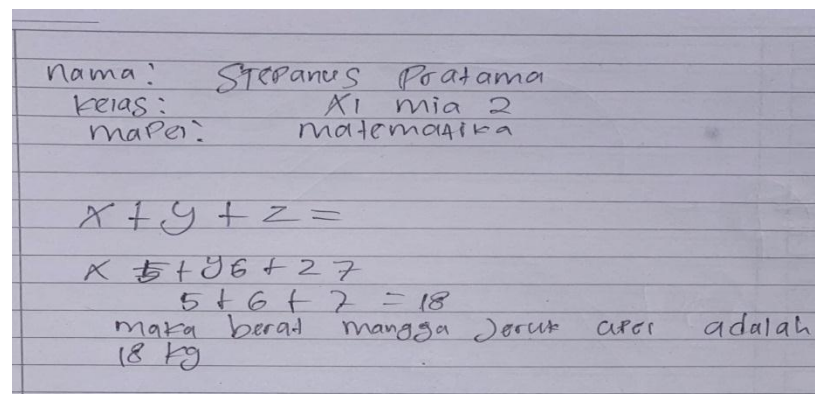 nama: Stepanus Pratama
kelas: XI mia 2
mapel: matematika
x + y + z =
x 5 + y6 + z 7
5 + 6 + 7 = 18
maka berat mangga Jeruk apel adalah
18 kg